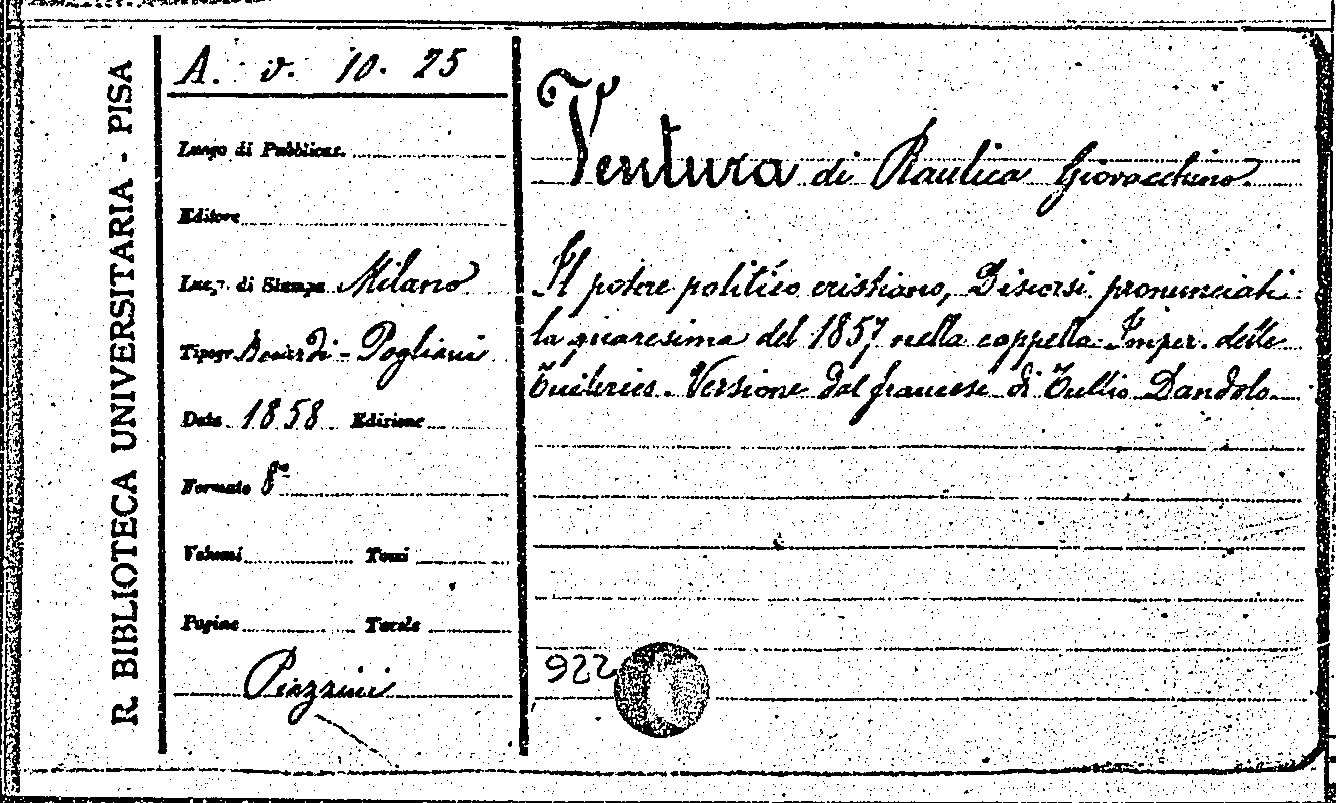 R. BIBLIOTECA UNIVERSITARIA - PISA
A. v. 10. 25
Luogo di Pubblicaz.
Editore
Luogo di Stampa Milano
Tipogr. Boniardi - Pogliani
Data 1858 Edizione
Formato 8°
Volumi Tomi
Pagine Tavole
Piazzini
Ventura di Raulica Giovacchino.
Il potere politico cristiano, Discorsi pronunciati
la quaresima del 1857 nella cappella Imper. delle
Tuileries. Versione dal francese di Tullio Dandolo.
922